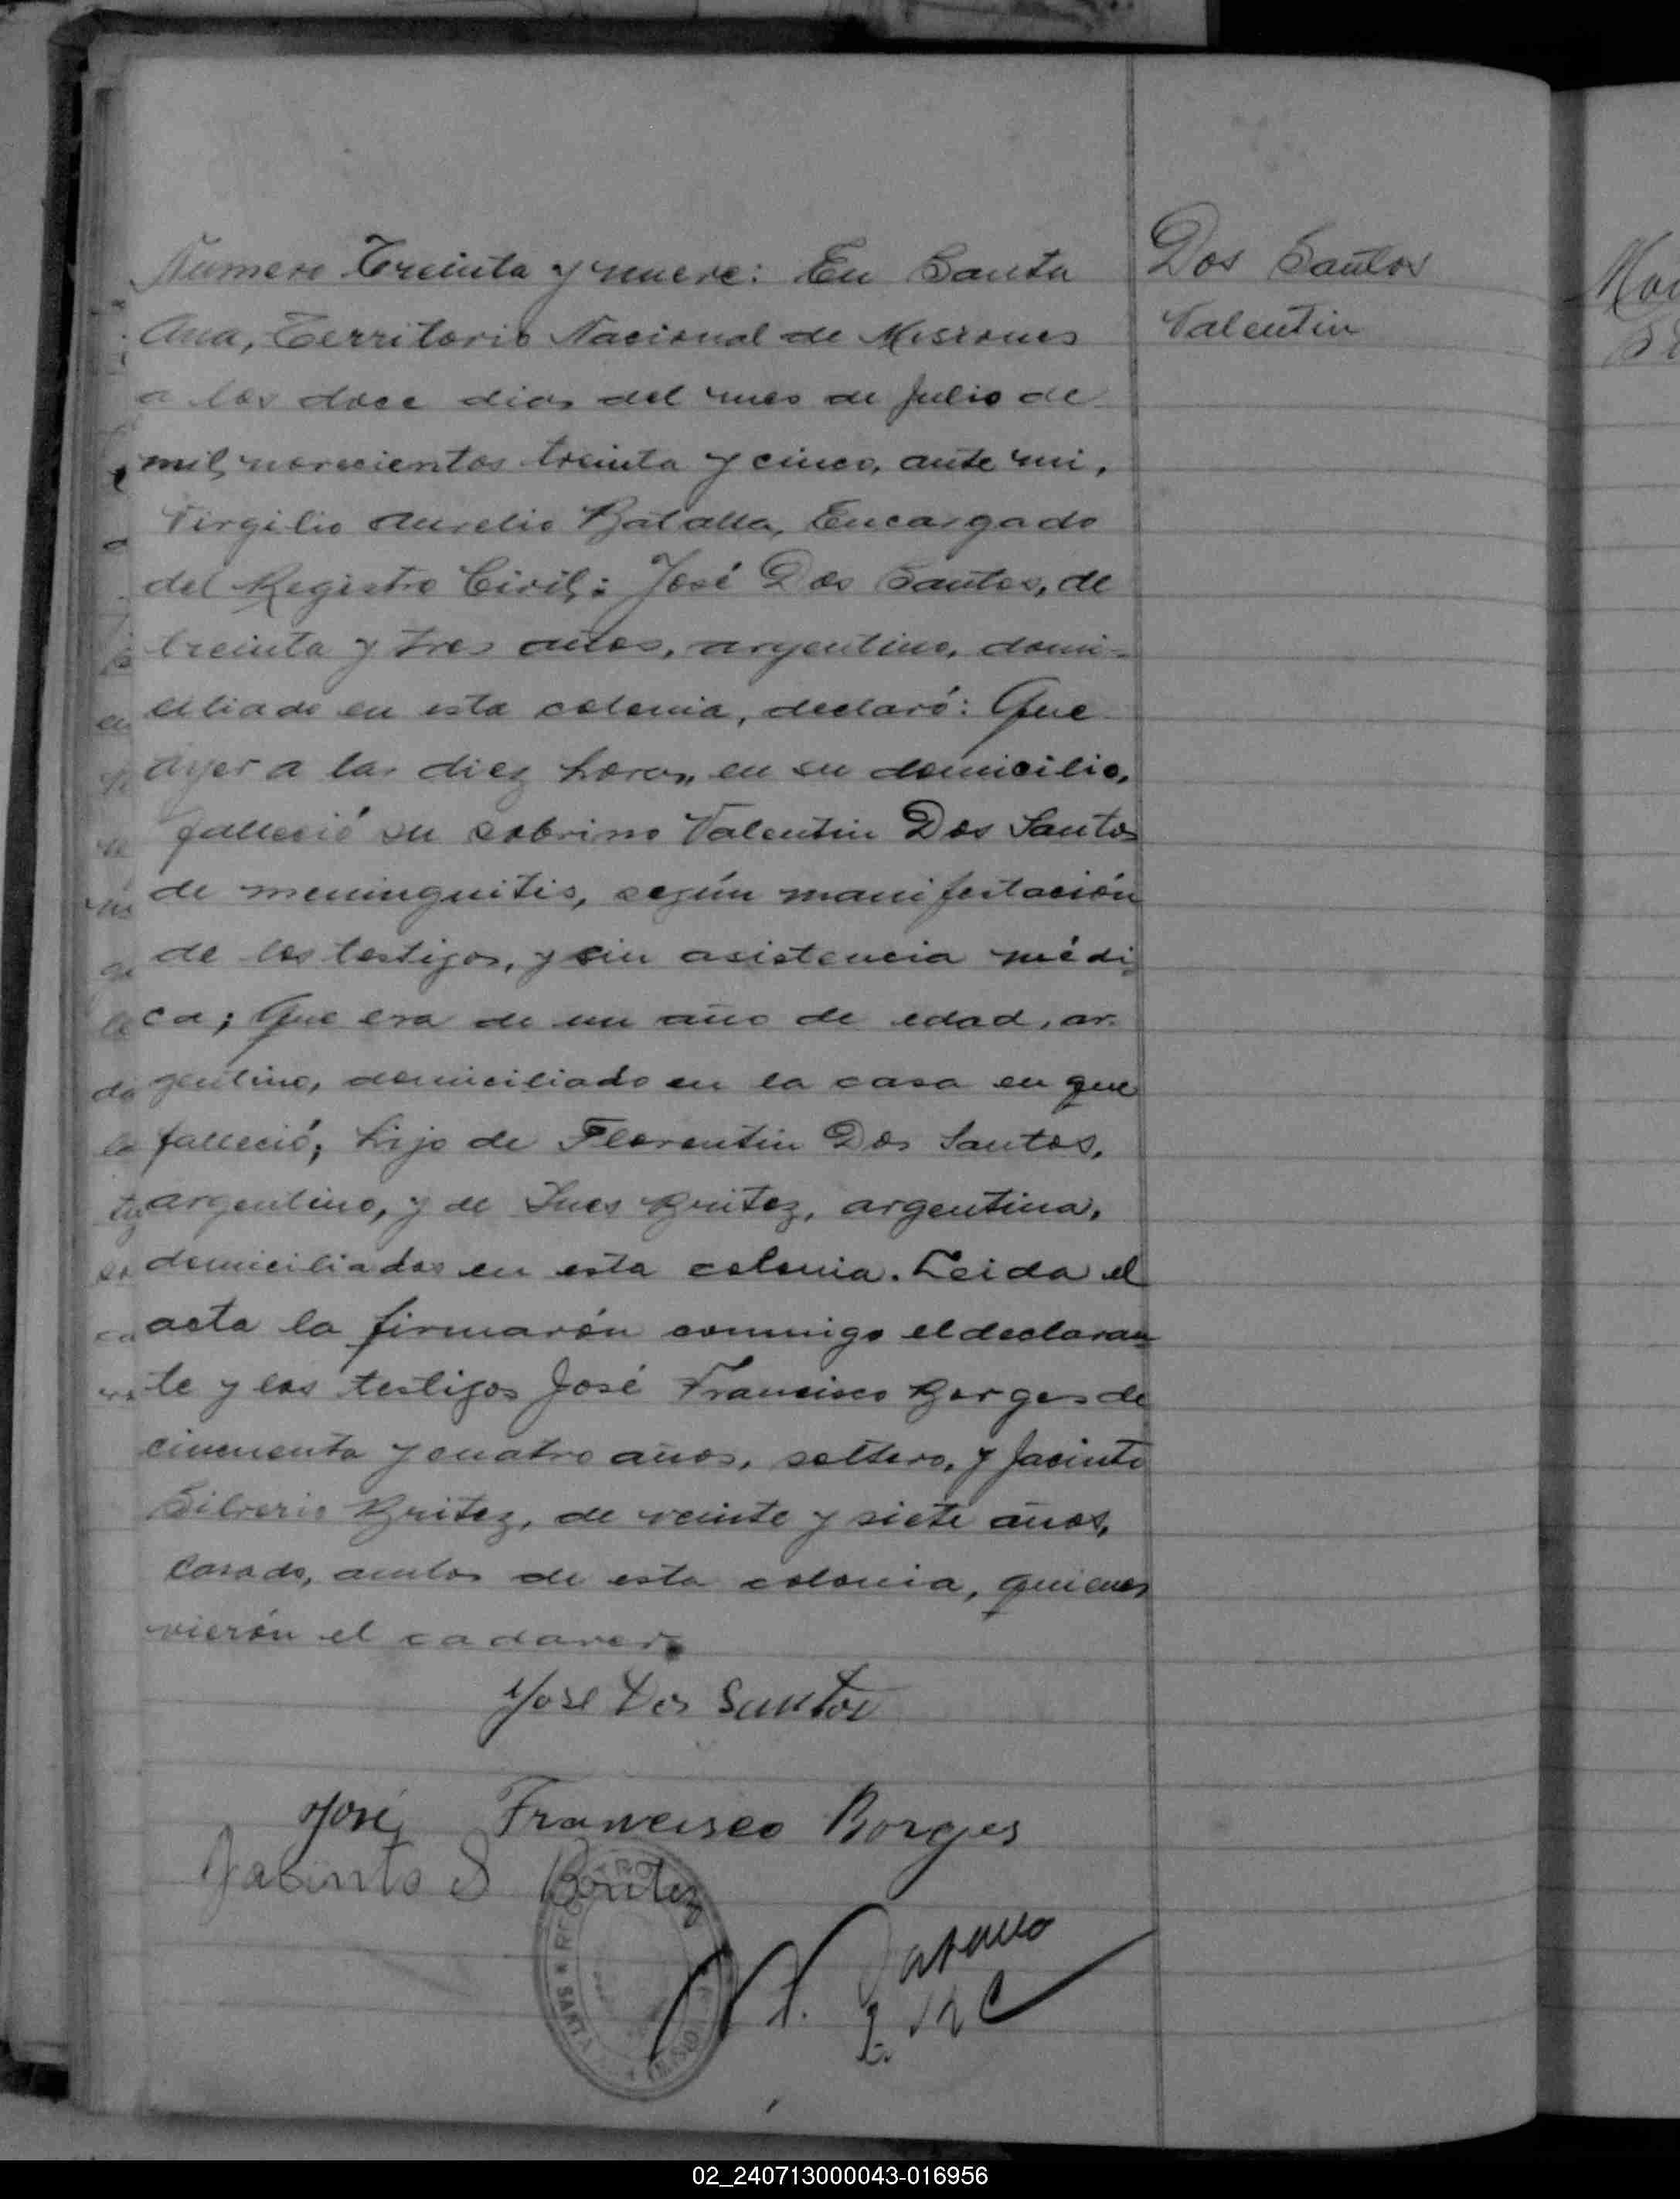 Numero Treinta y nueve: En Santa
Ana, Territorio Nacional de Misiones
a los doce dias del mes de Julio de
mil novecientos treinta y cinco, ante mi,
Virgilio Aurelio Batalla, Encargado
del Registro Civil: José Dos Santos, de
treinta y tres años, argentino, domi-
ciliado en esta colonia, declaró: Que
ayer a las diez horas, en su domicilio,
falleció su sobrino Valentin Dos Santos
de meninguitis, según manifestación
de los testigos, y sin asistencia médi
ca; Que era de un año de edad, ar-
gentino, domiciliado en la casa en que
falleció; hijo de Florentin Dos Santos,
argentino, y de Ines Britez, argentina,
domiciliados en esta colonia. Leida el
acta la firmarón conmigo el declaran
te y los testigos José Francisco Borges de
cincuenta y cuatro años, soltero, y Jacinto
Silverio Britez, de veinte y siete años,
casado, ambos de esta colonia, quienes
vierón el cadaver.
Dos Santos
Valentin
Jose Dos Santos
José Francisco Borges
Jacinto S Britez
SANTA
02_240713000043-016956